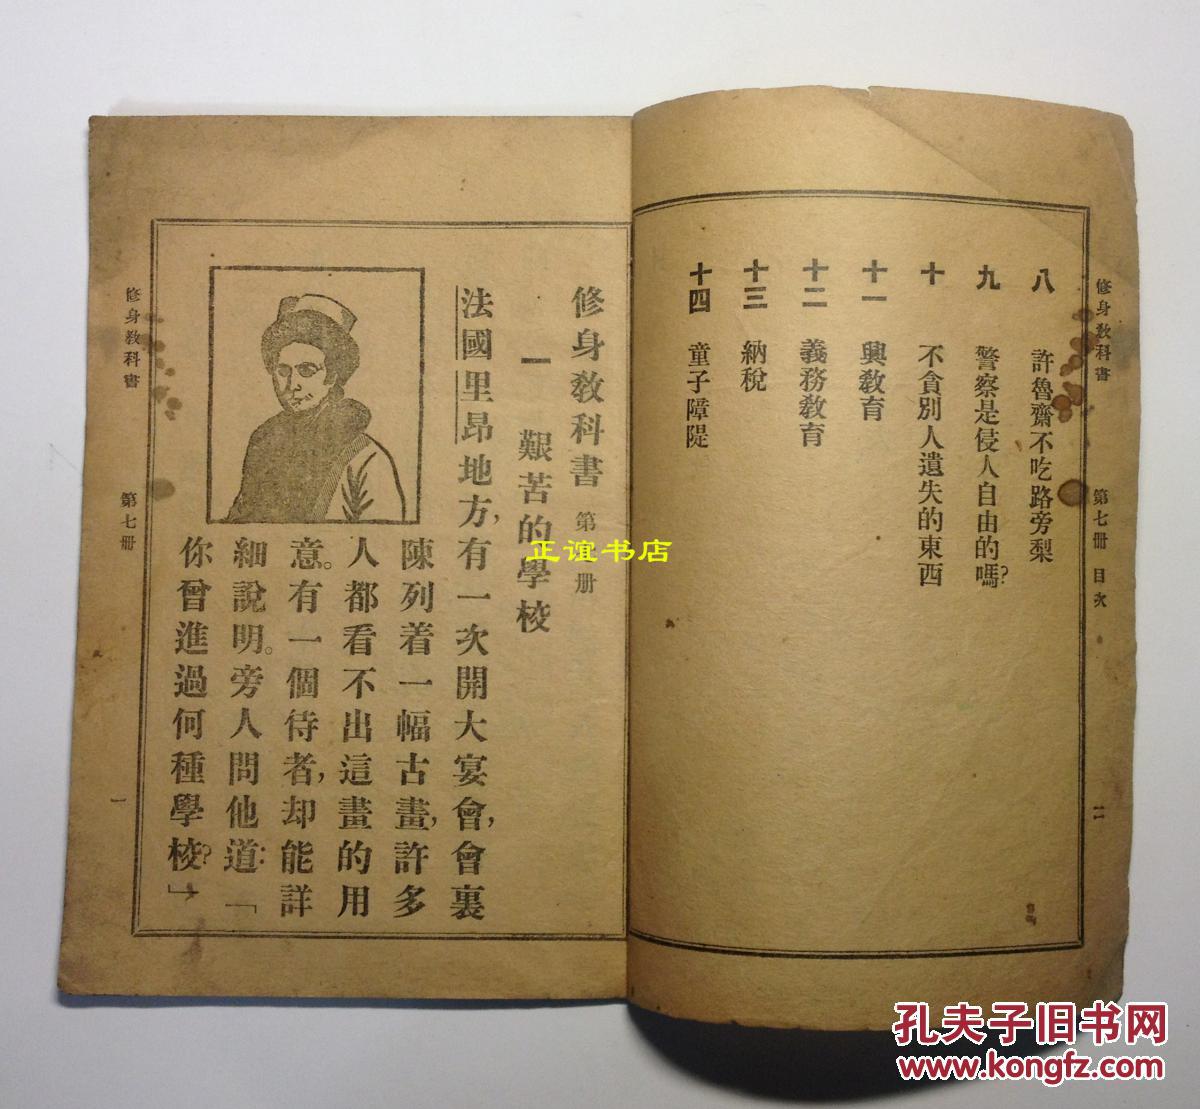 修身教科書
第七冊 目次
二
八 許魯齋不吃路旁梨
九 警察是侵人自由的嗎?
十 不貪別人遺失的東西
十一 興教育
十二 義務教育
十三 納稅
十四 童子障隄
修身教科書 第 冊
一 艱苦的學校
法國里昂地方,有一次開大宴會,會裏
陳列着一幅古畫,許多
人都看不出這畫的用
意。有一個侍者,却能詳
細說明。旁人問他道:「
你曾進過何種學校?」
修身教科書
第七冊
一
正谊书店
孔夫子旧书网
www.kongfz.com